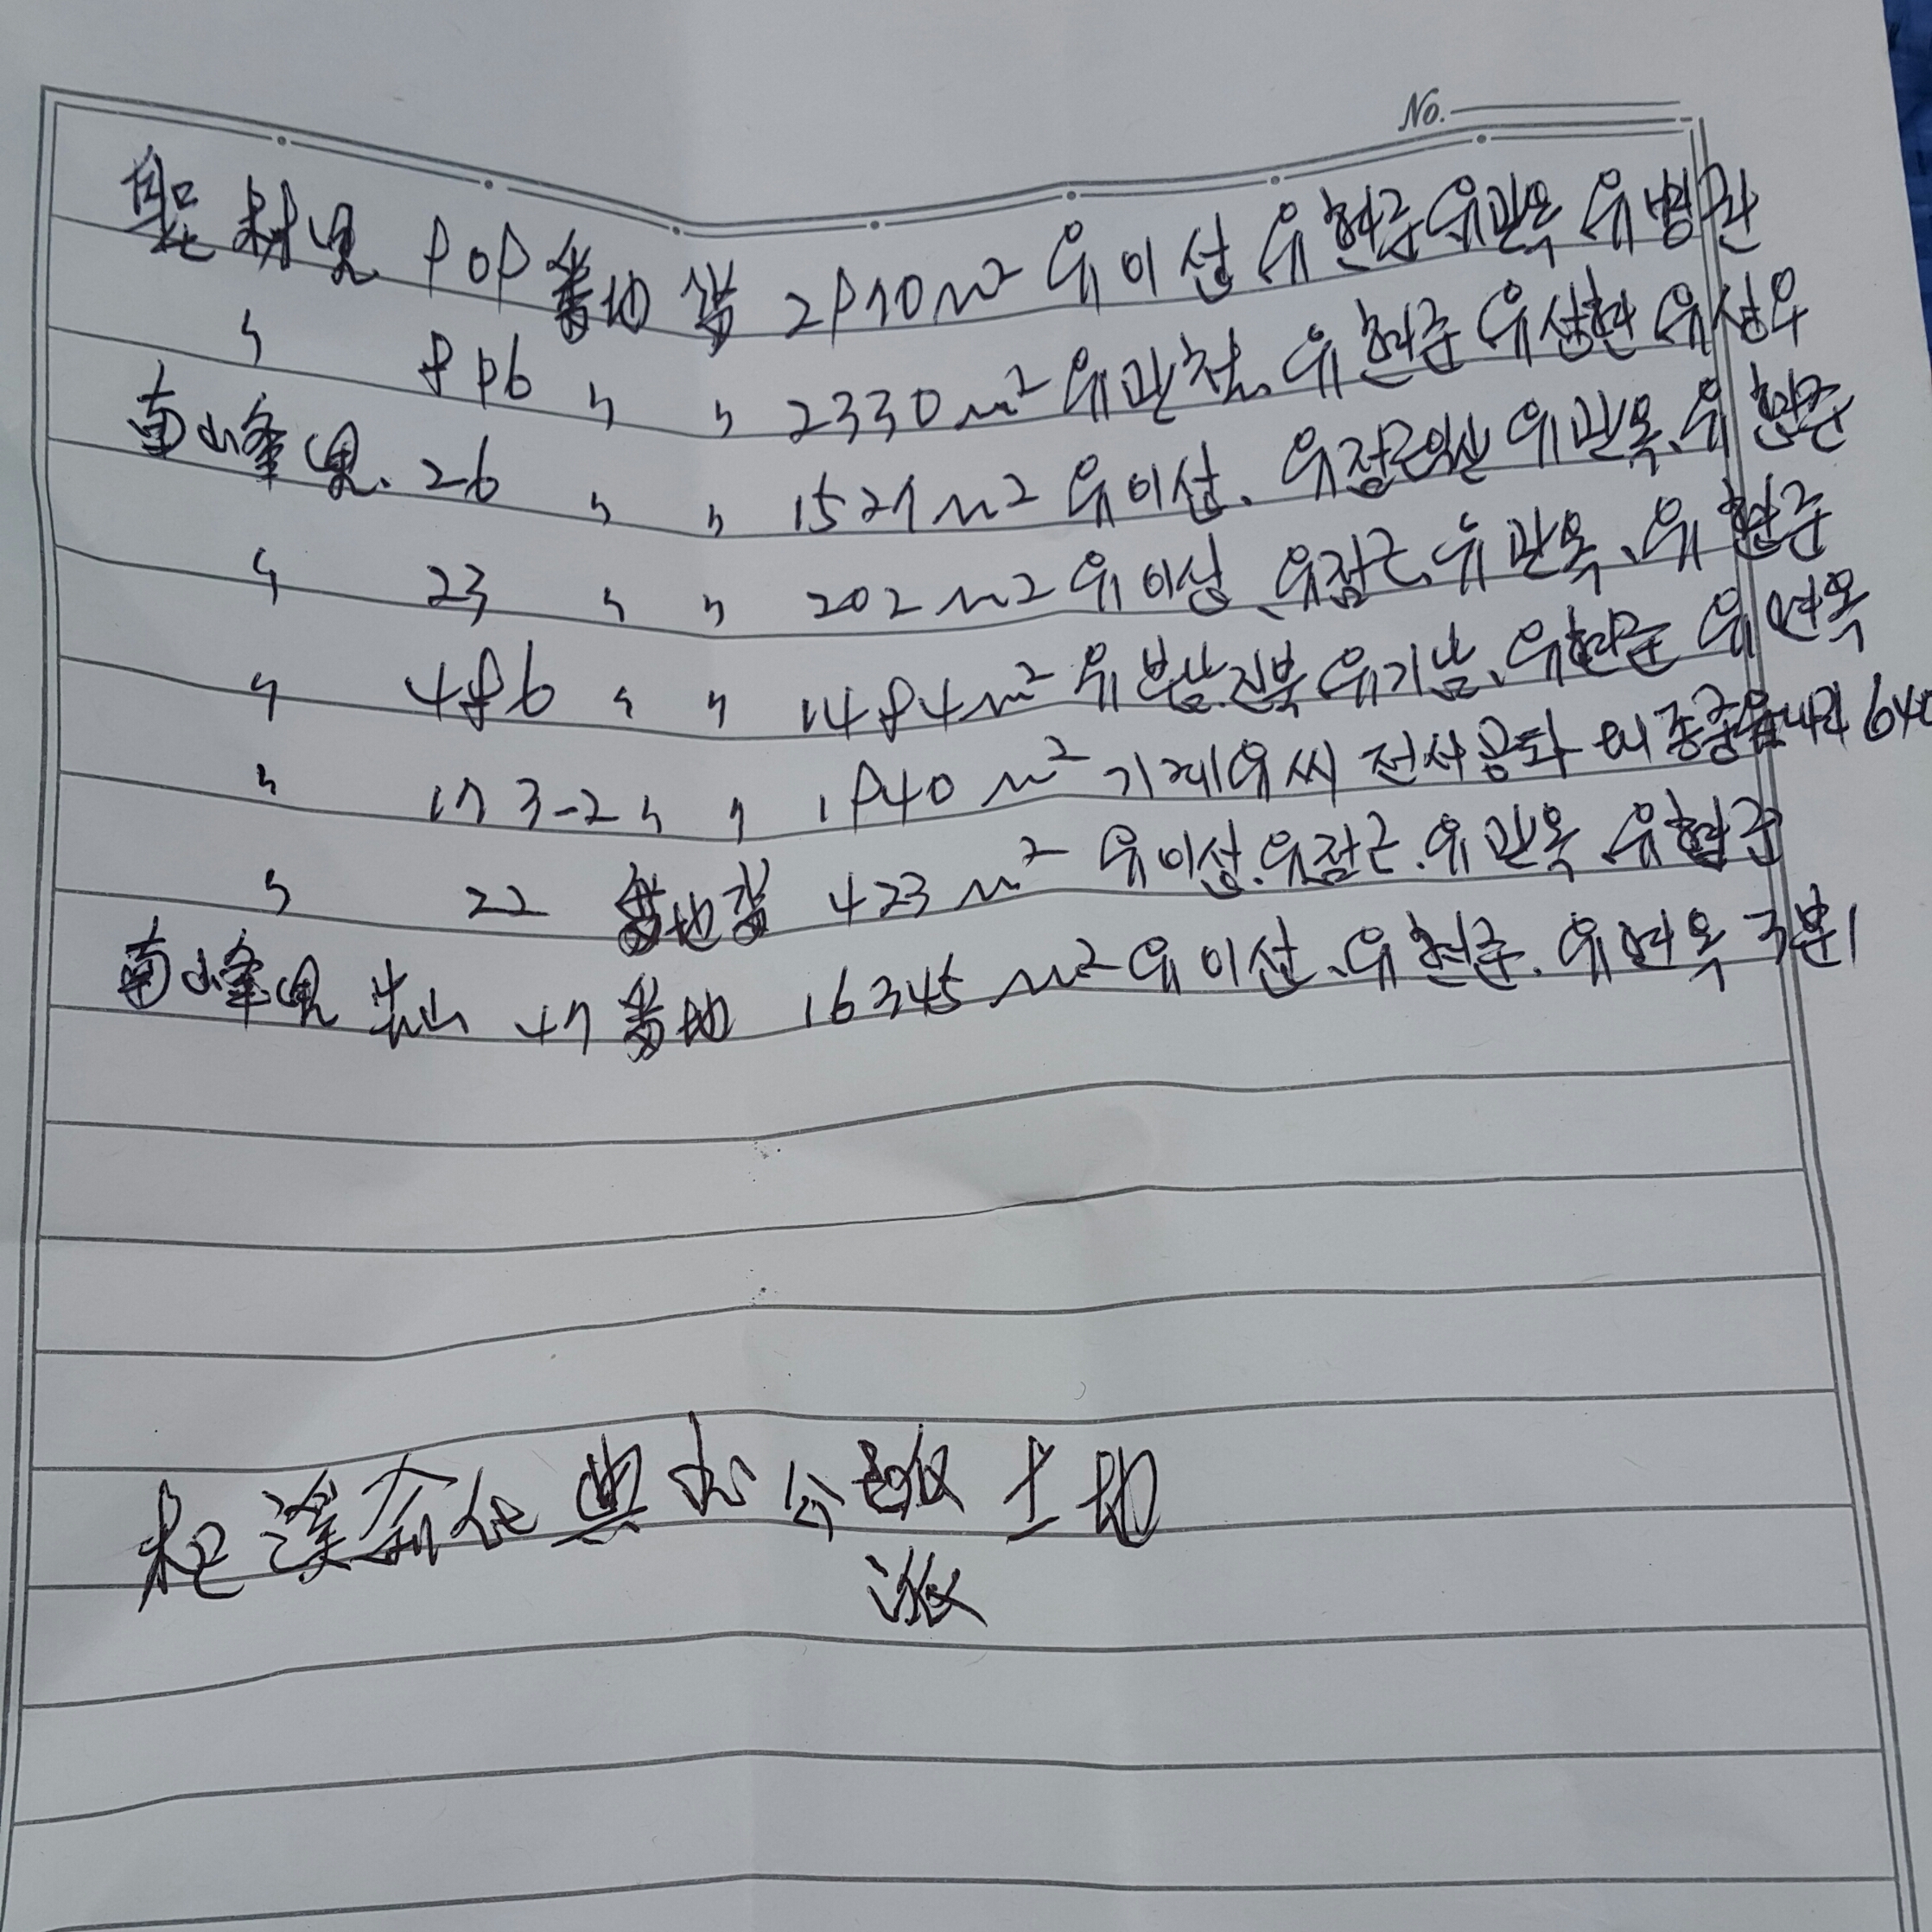 No.
聖材里 909番地 畓 2910m² 유이섭 유현준 유관옥 유병관
〃 896 〃 〃 2330m² 유관철. 유현준 유성현 유성우
南山峰里. 26 〃 〃 1521m² 유이섭. 유점근 유관옥. 유현준
〃 23 〃 〃 202m² 유이섭. 유점근. 유관옥. 유현준
〃 486 〃 〃 1484m² 유 전북 유기남. 유현준 유연옥
〃 173-2 〃 〃 1940m² 기계유씨 전서공파 종중 640
〃 22 番地 畓 423m² 유이섭. 유점근. 유관옥. 유현준
南山峰里 山 47 番地 16345m² 유이섭. 유현준. 유연옥 3분1
杞溪兪氏 典書公派 土地
派